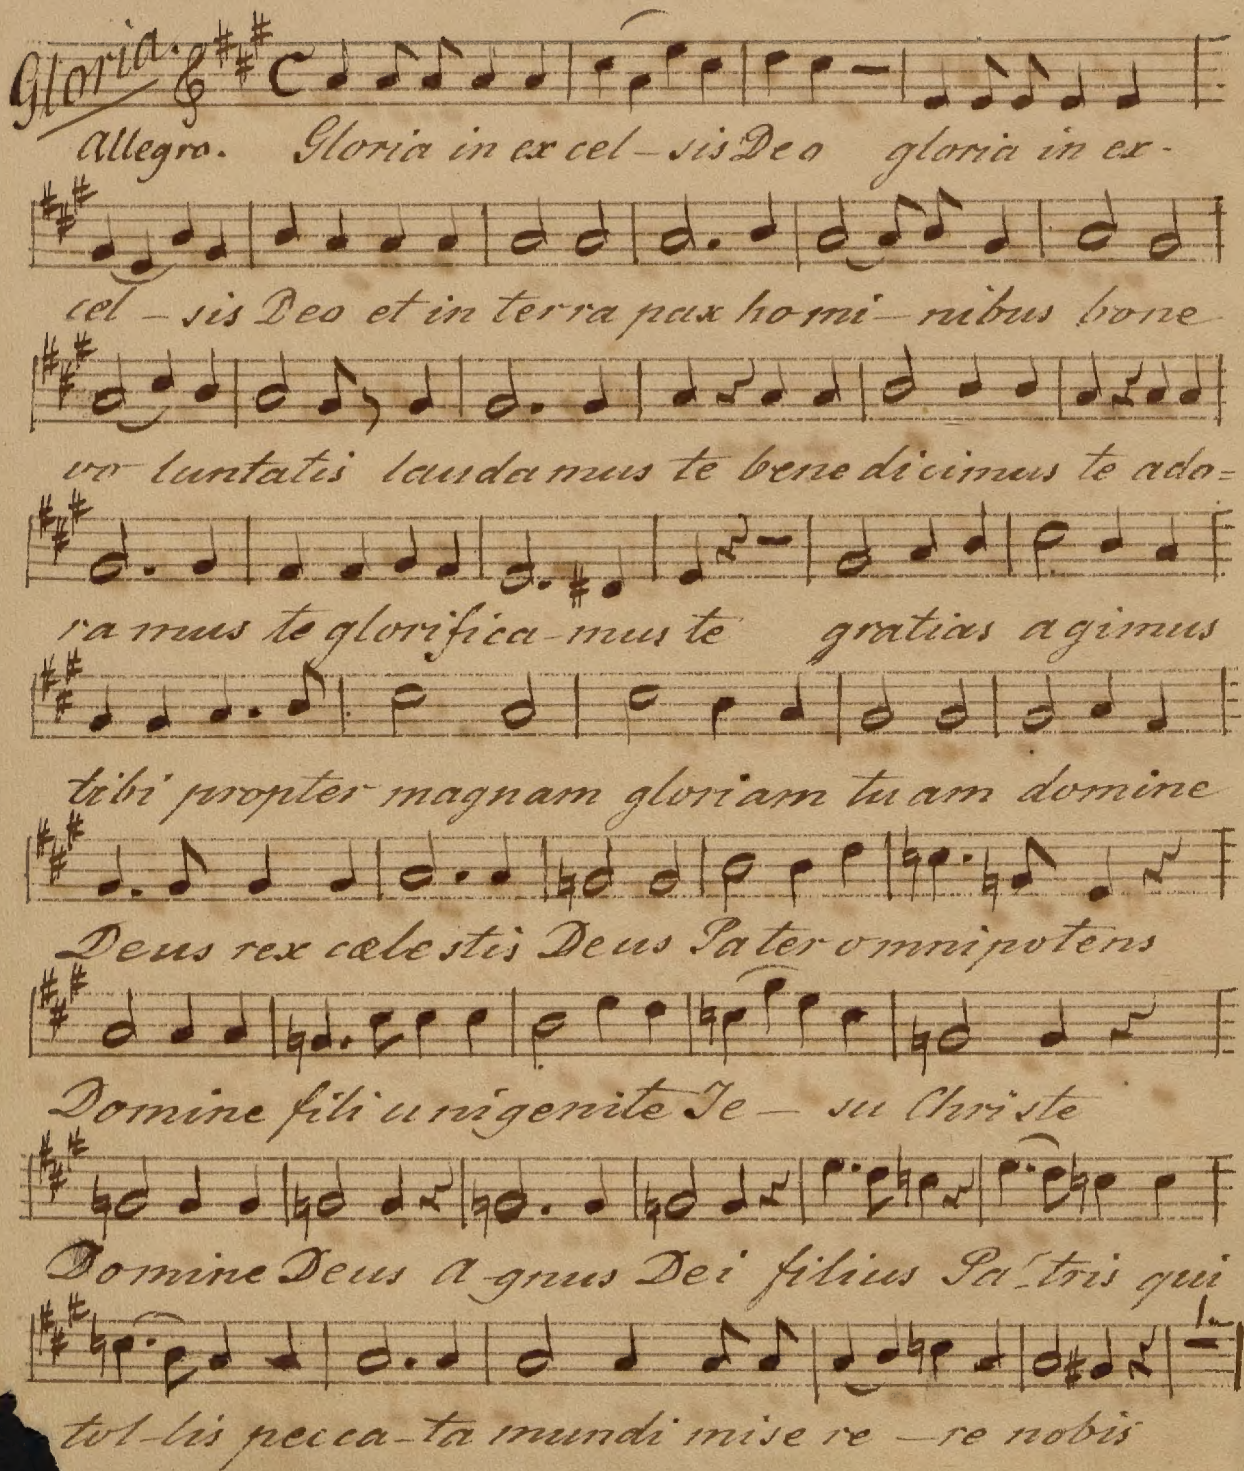 Gloria.
Allegro. Gloria in ex cel - sis Deo gloria in ex-
cel - sis Deo et in terra pax homi - nibus bone
vo luntatis laudamus te bene dicimus te ado=
ramus te glorifica-mus te gratias agimus
tibi propter magnam gloriam tuam domine
Deus rex cælestis Deus Pater omnipotens
Domine fili unigenite Je - su Christe
Domine Deus A-gnus Dei filius Pa-tris qui
tol-lis pecca-ta mundi mise re - re nobis